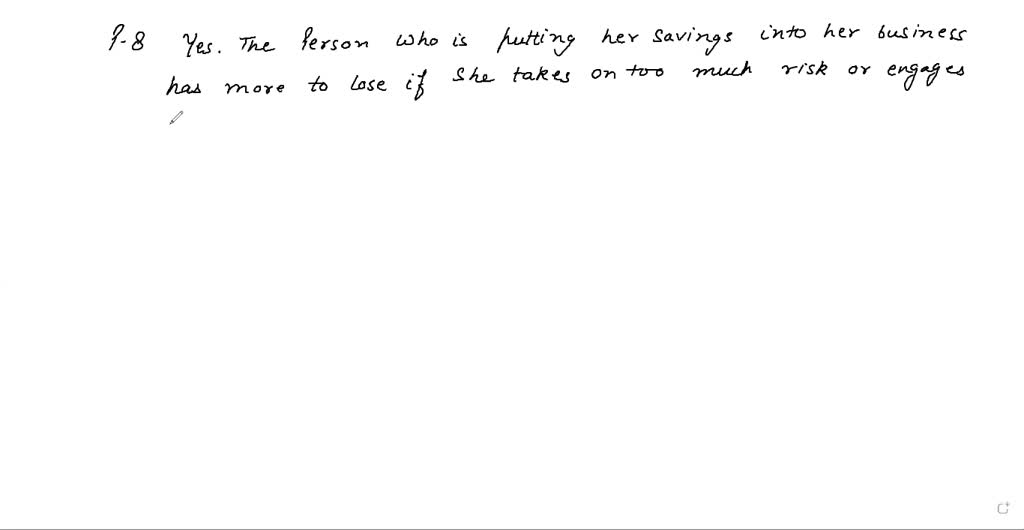 P-8 Yes. The Person who is putting her savings into her business
has more to lose if she takes on too much risk or engages